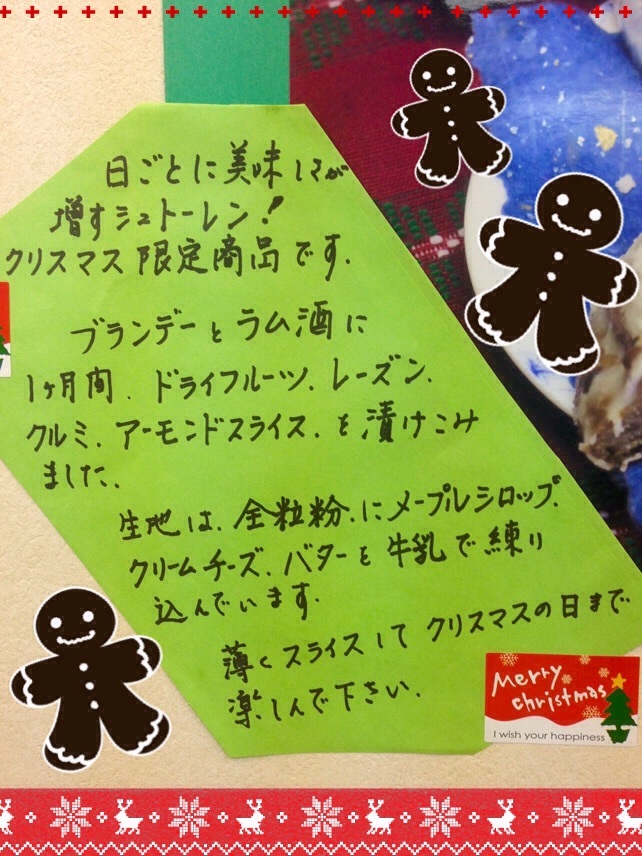 日ごとに美味しさが
増すシュトーレン!
クリスマス限定商品です.
ブランデーとラム酒に
1ヶ月間、ドライフルーツ、レーズン、
クルミ、アーモンドスライス、を漬けこみ
ました、
生地は、全粒粉、にメープルシロップ、
クリームチーズ、バターと牛乳で練り
込んでいます.
薄くスライスして クリスマスの日まで
楽しんで下さい.
Merry
christmas
I wish your happiness